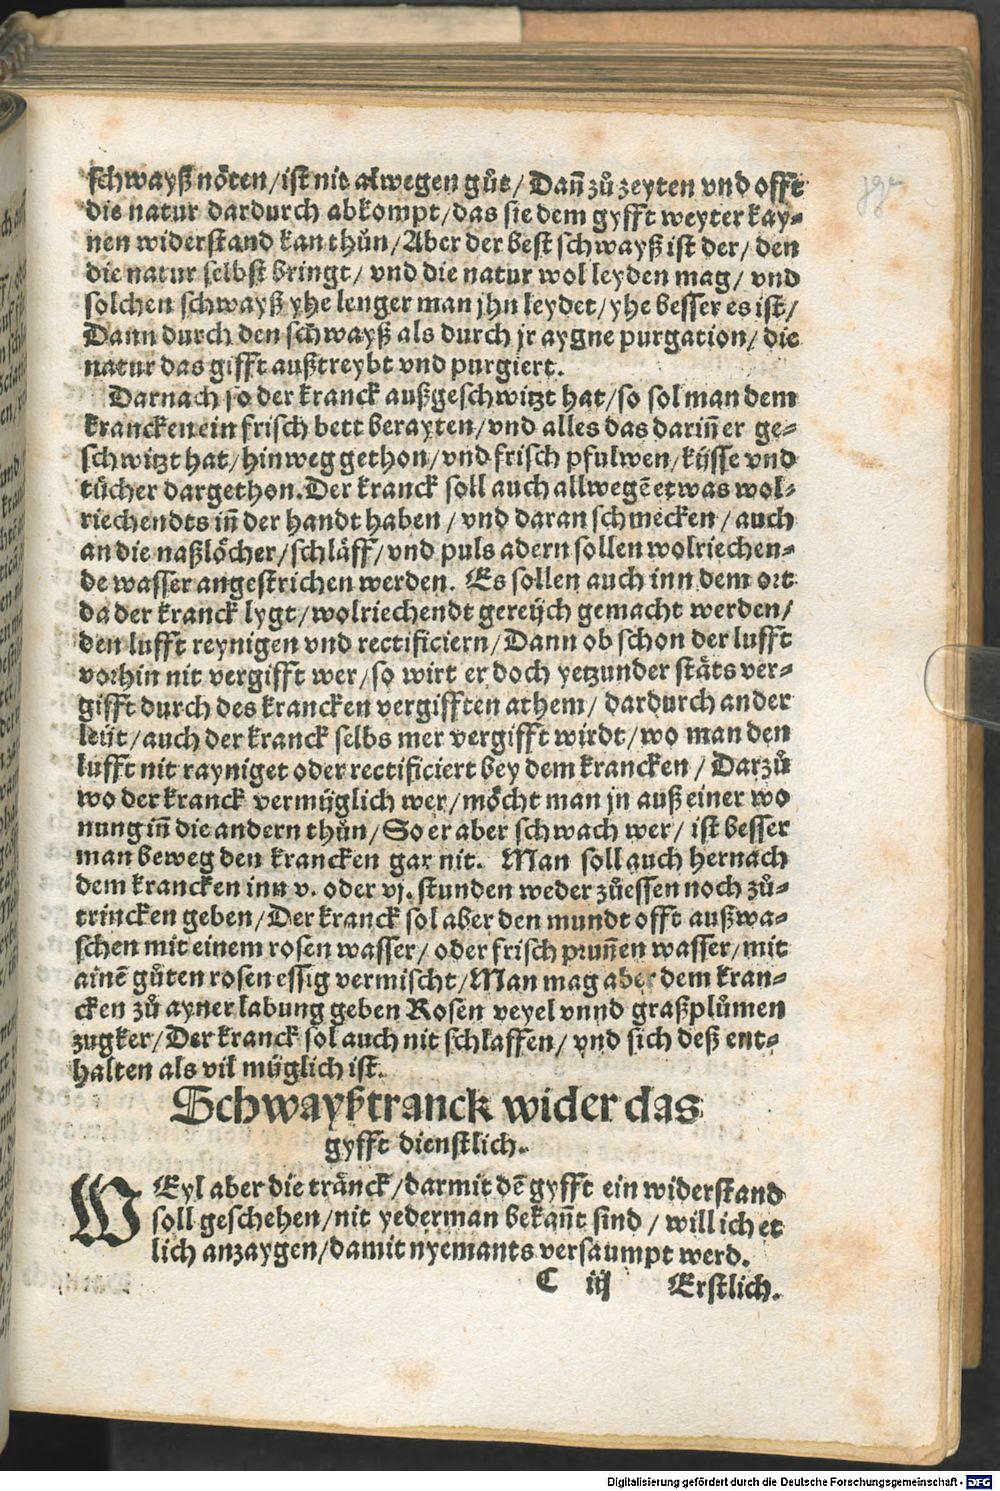 schwayß nöten/ist nit alwegen gůt/ Dañ zů zeyten vnd offt
die natur dardurch abkompt/das sie dem gyfft weyter kay-
nen widerstand kan thůn/Aber der best schwayß ist der/ den
die natur selbst bringt/ vnd die natur wol leyden mag/ vnd
solchen schwayß yhe lenger man jhn leydet/yhe besser es ist/
Dann durch den schwayß als durch jr aygne purgation/ die
natur das gifft außtreybt vnd purgiert.
Darnach so der kranck außgeschwitzt hat/so sol man dem
krancken ein frisch bett berayten/vnd alles das dariñ er ge-
schwitzt hat/hinweg gethon/vnd frisch pfulwen/küsse vnd
tücher dargethon.Der kranck soll auch allwegē etwas wol-
riechendts iñ der handt haben/vnd daran schmecken/auch
an die naßlöcher/schläff/vnd puls adern sollen wolriechen-
de wasser angestrichen werden. Es sollen auch inn dem ort
da der kranck lygt/wolriechendt gereüch gemacht werden/
den lufft reynigen vnd rectificiern/Dann ob schon der lufft
vorhin nit vergifft wer/so wirt er doch yetzunder stäts ver-
gifft durch des krancken vergifften athem/ dardurch ander
leüt/auch der kranck selbs mer vergifft wirdt/wo man den
lufft nit rayniget oder rectificiert bey dem krancken/ Darzů
wo der kranck vermüglich wer/möcht man jn auß einer wo
nung iñ die andern thůn/So er aber schwach wer/ ist besser
man beweg den krancken gar nit. Man soll auch hernach
dem krancken inn v. oder vj. stunden weder zůessen noch zů-
trincken geben/Der kranck sol aber den mundt offt außwa-
schen mit einem rosen wasser/oder frisch pruñen wasser/mit
ainē gůten rosen essig vermischt/Man mag aber dem kran-
cken zů ayner labung geben Rosen veyel vnnd graßplůmen
zugker/Der kranck sol auch nit schlaffen/ vnd sich deß ent-
halten als vil müglich ist.
Schwayßtranck wider das
gyfft dienstlich.
WEyl aber die tränck/darmit dē gyfft ein widerstand
soll geschehen/nit yederman bekañt sind/will ich et
lich anzaygen/damit nyemants versaumpt werd.
C iij Erstlich.
Digitalisierung gefördert durch die Deutsche Forschungsgemeinschaft - DFG